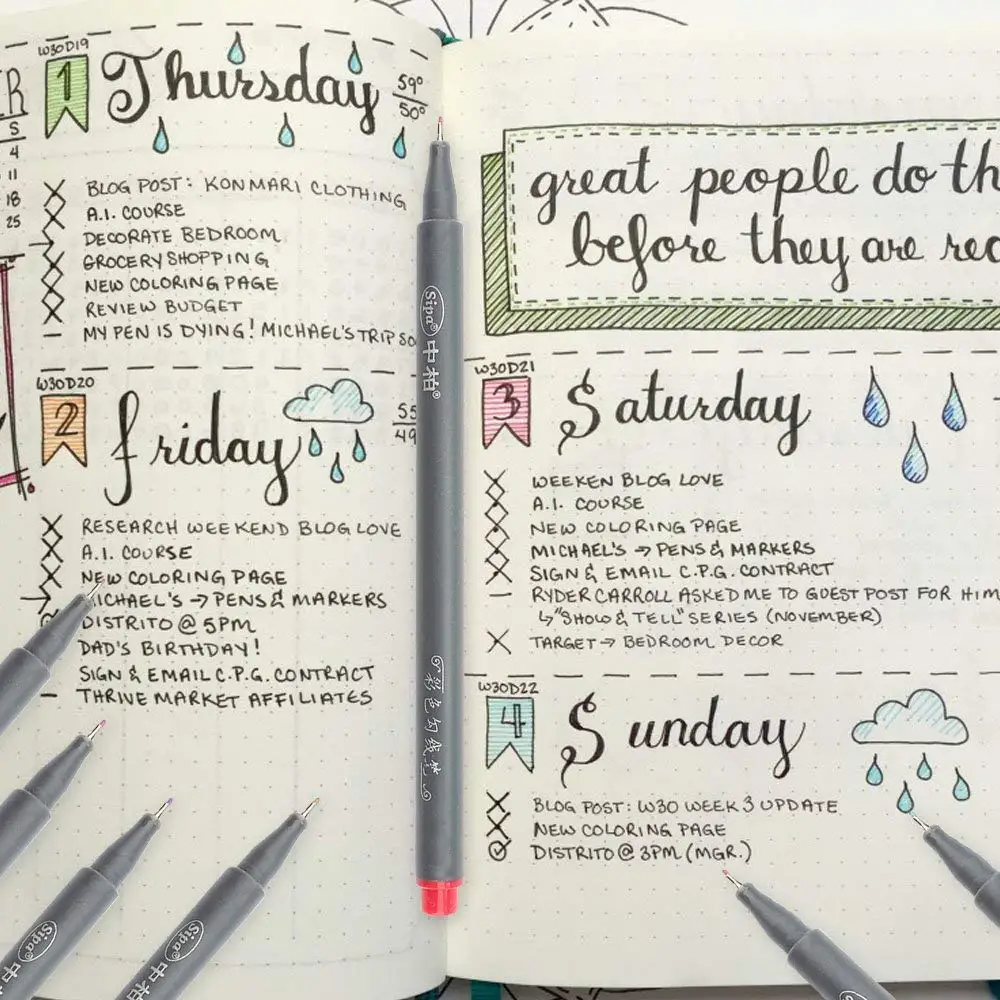 R
S
4
11
18
25
W30D19
1 Thursday 59° 50°
BLOG POST: KONMARI CLOTHING
A.I. COURSE
DECORATE BEDROOM
GROCERY SHOPPING
NEW COLORING PAGE
REVIEW BUDGET
– MY PEN IS DYING! MICHAEL'S TRIP SO
W30D20
2 friday 55 49
RESEARCH WEEKEND BLOG LOVE
A.I. COURSE
NEW COLORING PAGE
MICHAEL'S → PENS & MARKERS
DISTRITO @ 5PM
DAD'S BIRTHDAY!
SIGN & EMAIL C.P.G. CONTRACT
– THRIVE MARKET AFFILIATES
great people do th
before they are rea
W30D21
3 Saturday
WEEKEN BLOG LOVE
A.I. COURSE
NEW COLORING PAGE
MICHAEL'S → PENS & MARKERS
SIGN & EMAIL C.P.G. CONTRACT
– RYDER CARROLL ASKED ME TO GUEST POST FOR HIM
↳ "SHOW & TELL" SERIES (NOVEMBER)
TARGET → BEDROOM DECOR
W30D22
4 Sunday
BLOG POST: W30 WEEK 3 UPDATE
NEW COLORING PAGE
DISTRITO @ 3PM (MGR.)
Sipa® 中柏®
彩色勾线笔
Sipa® 中柏
Sipa® 中柏